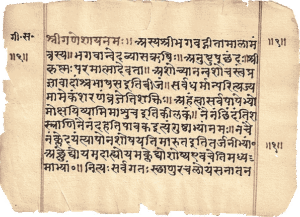 गी॰स॰ श्रीगणेशायनमः॥ अस्यश्रीभगवद्गीतामालामं
॥१॥ त्रस्य॥ भगवान्वेदव्यासऋषिः॥ अनुष्टुप्छंदः॥ श्री ॥१॥
कृष्णः परमात्मादेवता॥ अशोच्यानन्वशोचस्त्वंप्र
ज्ञावादांश्चभाषसइतिबीजं॥ सर्वधर्मान्परित्यज्य
मामेकंशरणंव्रजेतिशक्तिः॥ अहंत्वासर्वपापेभ्यो
मोक्षयिष्यामिमाशुचइतिकीलकं॥ नैनंछिंदंतिश
स्त्राणिनैनंदहतिपावकइत्यंगुष्ठाभ्यांनमः॥ नचै
नंक्लेदयंत्यापोनशोषयतिमारुतइतितर्जनीभ्यां॰ ॥१॥
अच्छेद्योयमदाह्योयमक्लेद्योशोष्यएवचेतिमध्य
माभ्यां॰॥ नित्यः सर्वगतः स्थाणुरचलोयंसनातन